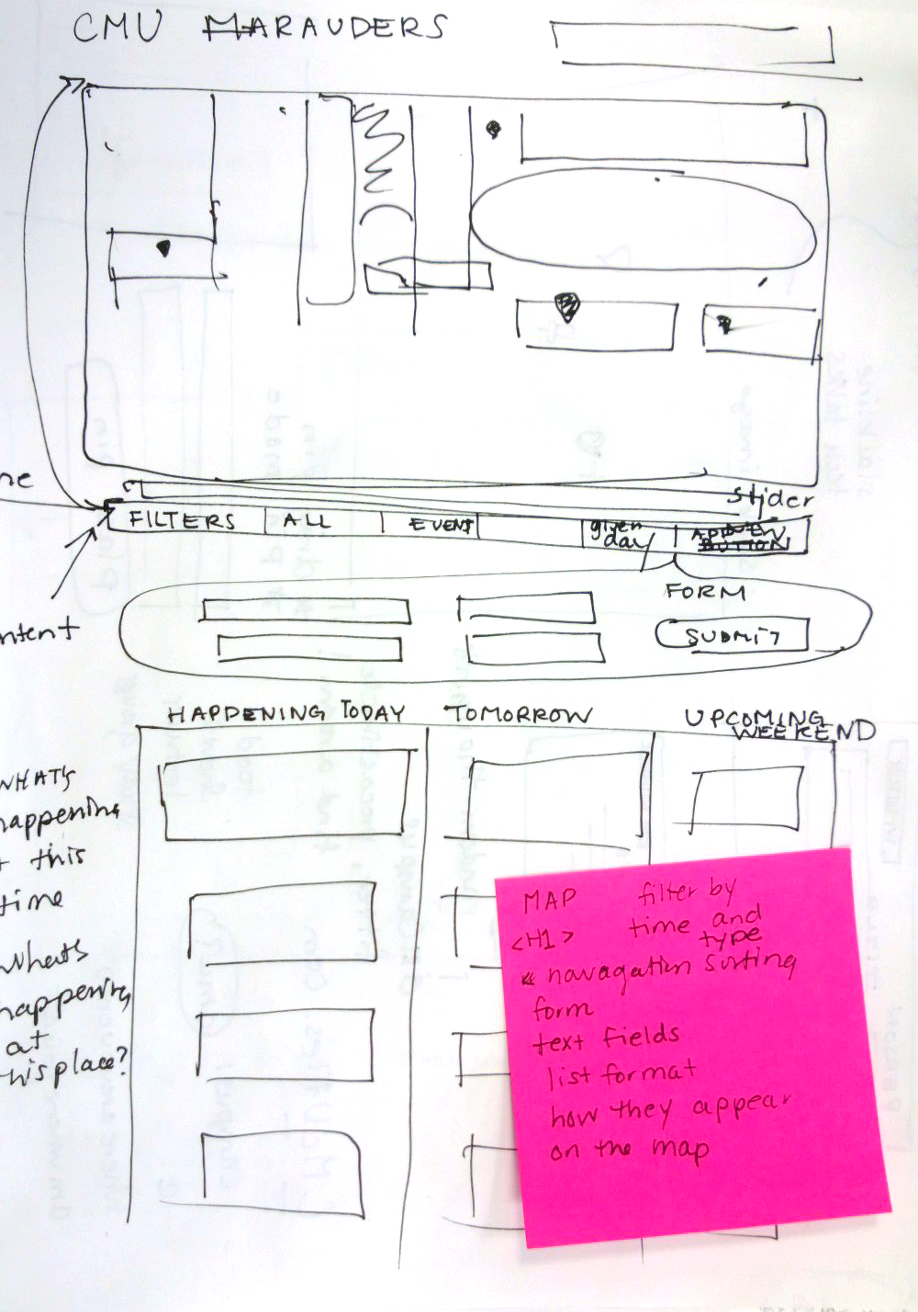 CMU MARAUDERS
ne
slider
FILTERS ALL EVENT given day
BUTTON
FORM
ntent
SUBMIT
HAPPENING TODAY TOMORROW UPCOMING WEEKEND
WHAT'S
happening
t this
time
whats
happening
at
his place?
MAP filter by
<H1> time and
type
navagation sorting
form
text fields
list format
how they appear
on the map